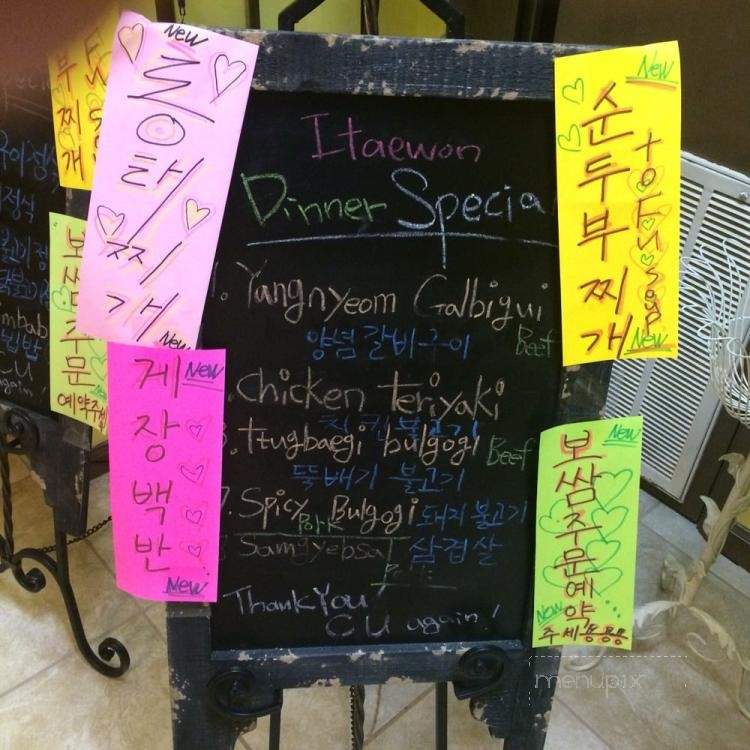 New
동태찌개
New
게장백반
New
New
Itaewon
Dinner Special
1. Yangnyeom Galbigui
양념갈비구이 Beef
chicken teriyaki
치킨불고기
ttugbaegi bulgogi Beef
뚝배기 불고기
Spicy Pork Bulgogi 돼지불고기
Samgyebsal 삼겹살
Thank You
C U again!
New
순두부찌개
tofu soup
New
New
보쌈주문예약
New
주세용용용
부찌개
보쌈주문
예약주세
menupix